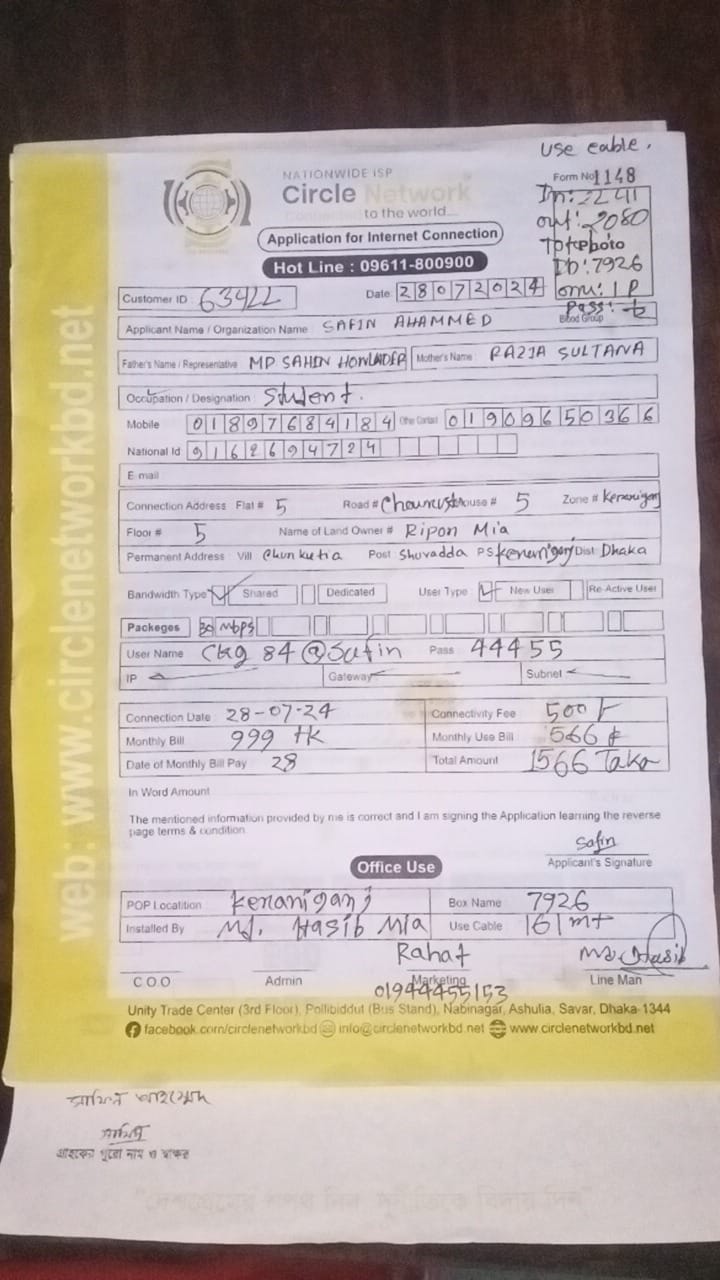 use cable,
NATIONWIDE ISP
Form No 1148
Circle Network
In: 2241
to the world
out: 2080
Application for Internet Connection
photo
Hot Line : 09611-800900
ID: 7926
Customer ID : 63422
Date 28072024
onu: 1 P
Pass:
Blood Group
Applicant Name / Organization Name SAFIN AHAMMED
Father's Name / Representative MD SAHIN HOWLADER Mother's Name : RAZIA SULTANA
Occupation / Designation Student.
Mobile 01897684184 Other Contact 01909650366
National Id 9162694724
E-mail
Connection Address Flat # 5 Road # House # 5 Zone # Keranigonj
Floor # 5 Name of Land Owner # Ripon Mia
Permanent Address : Vill Chunkutia Post Shuvadda PS Keranigonj Dist Dhaka
Bandwidth Type Shared Dedicated User Type : New User Re-Active User
Packeges 30 Mbps
User Name Ckg 84 @Safin Pass 44455
IP Gateway Subnel
Connection Date : 28-07-24 Connectivity Fee 500
Monthly Bill 999 tk Monthly Use Bill 566
Date of Monthly Bill Pay 28 Total Amount 1566 Taka
In Word Amount
The mentioned information provided by me is correct and I am signing the Application learning the reverse
page terms & condition
Safin
Applicant's Signature
Office Use
POP Locatition Keraniganj Box Name 7926
Installed By Md. Hasib Mia Use Cable 161 mt
Rahat Md. Hasib
C O O Admin Marketing Line Man
01944455153
Unity Trade Center (3rd Floor), Pollibiddut (Bus Stand), Nabinagar, Ashulia, Savar, Dhaka-1344
facebook.com/circlenetworkbd info@circlenetworkbd.net www.circlenetworkbd.net
web: www.circlenetworkbd.net
সাফিন আহমেদ
সাফিন
গ্রাহকের পুরো নাম ও স্বাক্ষর